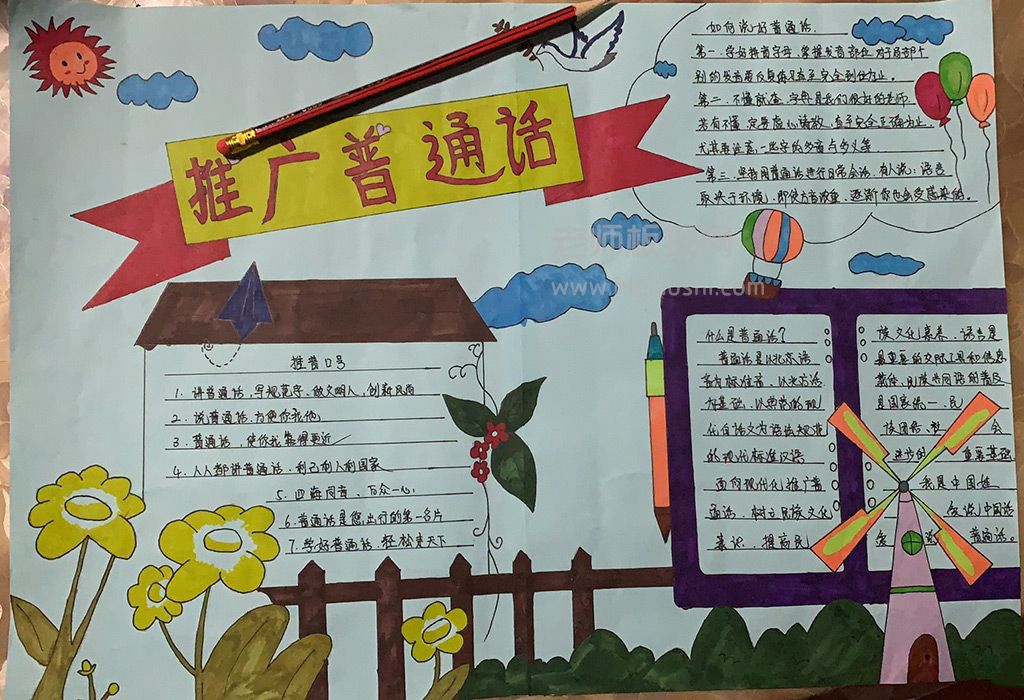 推广普通话
如何说好普通话.
第一.学好拼音字母.掌握发音部位.对于局部个
别的发音要反复练习直至完全到位为止。
第二.不懂就查.字典是我们很好的老师.
若有不懂.定要虚心请教.直至完全正确为止.
尤其要注意一些字的多音与多义等
第三.坚持用普通话进行日常会话.有人说:语言
取决于环境.即使方言浓重.逐渐你也会受感染的。
推普口号
1.讲普通话.写规范字.做文明人.创新风尚
2.说普通话.方便你我他
3.普通话.使你我靠得更近
4.人人都讲普通话.利己利人利国家
5.四海同音.万众一心
6.普通话是您出行的第一名片
7.学好普通话.轻松走天下
什么是普通话?
普通话是以北京语
音为标准音.以北方话
为基础.以典范的现
代白话文为语法规范
的现代标准汉语
面向现代化推广普
通话.树立民族文化
意识.提高民
族文化素养.语言是
最重要的交际工具和信息
载体.民族共同语的普及
是国家统一.民
族团结.社会
进步的重要基础
我是中国娃
爱说中国话
普通话。